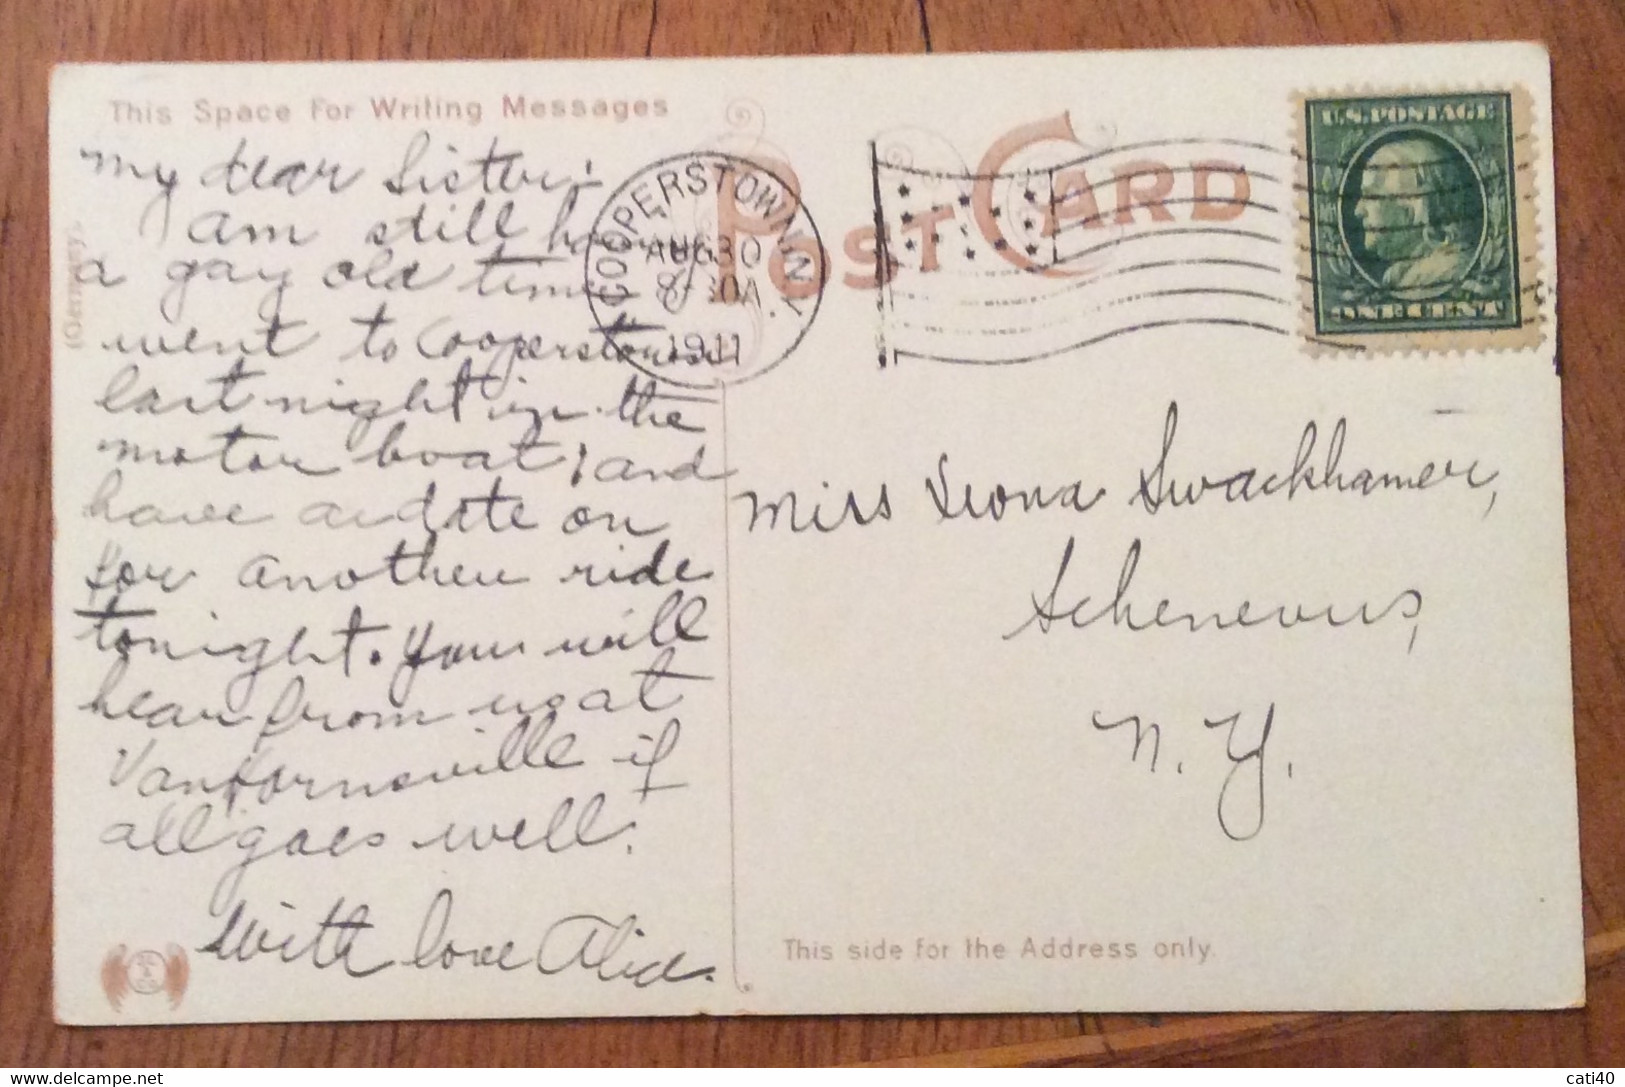 This Space For Writing Messages
POST CARD
U.S. POSTAGE
ONE CENT
COOPERSTOWN, N.Y.
AUG 30
8-30A
1911
(Germany).
My dear Sister:
am still having
a gay old time
went to Cooperstown
last night in the
motor boat, and
have a date on
for another ride
tonight. You will
hear from us at
VanHornsville if
all goes well.
With love Alice.
Miss Leona Swackhamer,
Schenevus,
N.Y.
This side for the Address only.
cati40